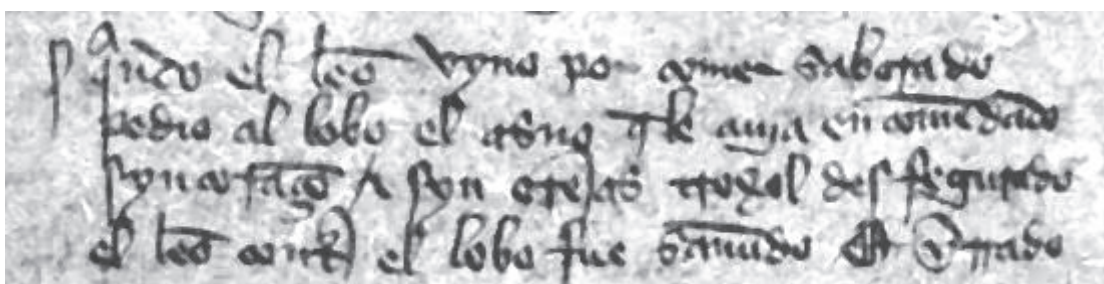 qando el leō vyno por comer saborado
pedio al lobo el asno q̄ le auja en comēdado
syn coraçō E syn orejas troxol des fegurado
el leō contra el lobo fue sañudo E yrado